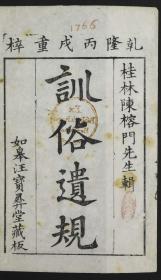 1766
乾隆丙戌重梓
桂林陳榕門先生輯
訓俗遺規
如皋汪寶堂藏板